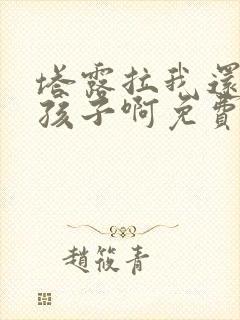 塔露拉我還
孩子啊免費
趙筱青